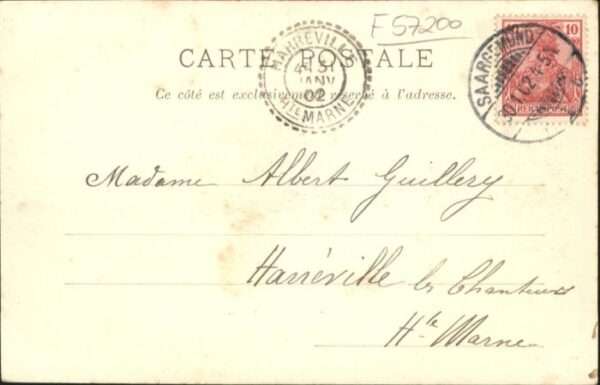 F 57200
CARTE POSTALE
Ce côté est exclusivement réservé à l'adresse.
HARRÉVILLE
31
JANV
02
HTE MARNE
SAARGEMÜND
10
Madame Albert Guillery
Harréville les Chanteurs
Hte Marne